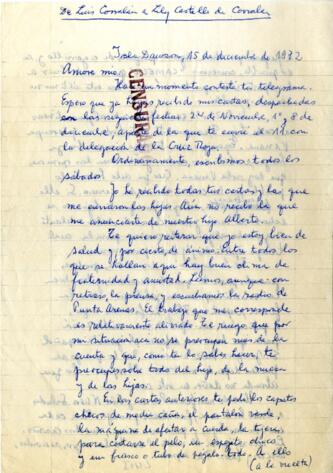 De Luis Corvalán a Lily Castillo de Corvalán
Isla Dawson, 15 de diciembre de 1972
Amor mío:
Hace un momento contesté tu telegrama.
Espero que ya hayas recibido mis cartas, despachadas
con las siguientes fechas: 24 de Noviembre, 1º y 8 de
diciembre, aparte de la que te envié el 11 con
la delegación de la Cruz Roja.
CENSURA
Ordinariamente, escribimos todos los
sábados.
Yo he recibido todas tus cartas y las que
me enviaron las hijas. Aún no recibo la que
me anunciaste de nuestro hijo Alberto.
Te quiero reiterar que yo estoy bien de
salud y, por cierto, de ánimo. Entre todos los
que se hallan aquí hay buen clima de
fraternidad y amistad. Leemos, aunque con
retraso, la prensa, y escuchamos la radio de
Punta Arenas. El trabajo que me corresponde
es relativamente aliviado. Te ruego que por
mi situación no se preocupen más de la
cuenta y que, como tú lo sabes hacer, te
preocupes sobre todo del hijo, de la
y de las hijas.
En las cartas anteriores te pedí los zapatos
chicos de media caña, el pantalón verde,
la máquina de afeitar a cuerda, la tijera
para cortarse el pelo, un espejo chico
y un frasco o tubo de pegalo-todo. A ello
(a la vuelta)